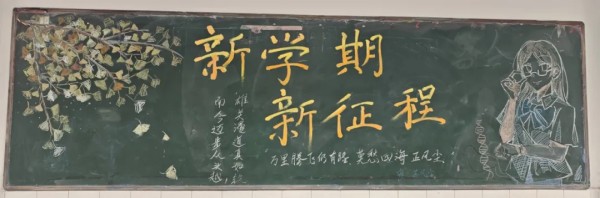 新学期
新征程
雄关漫道真如铁
而今迈步从头越，
万里腾飞仍有路 莫愁四海正风尘.